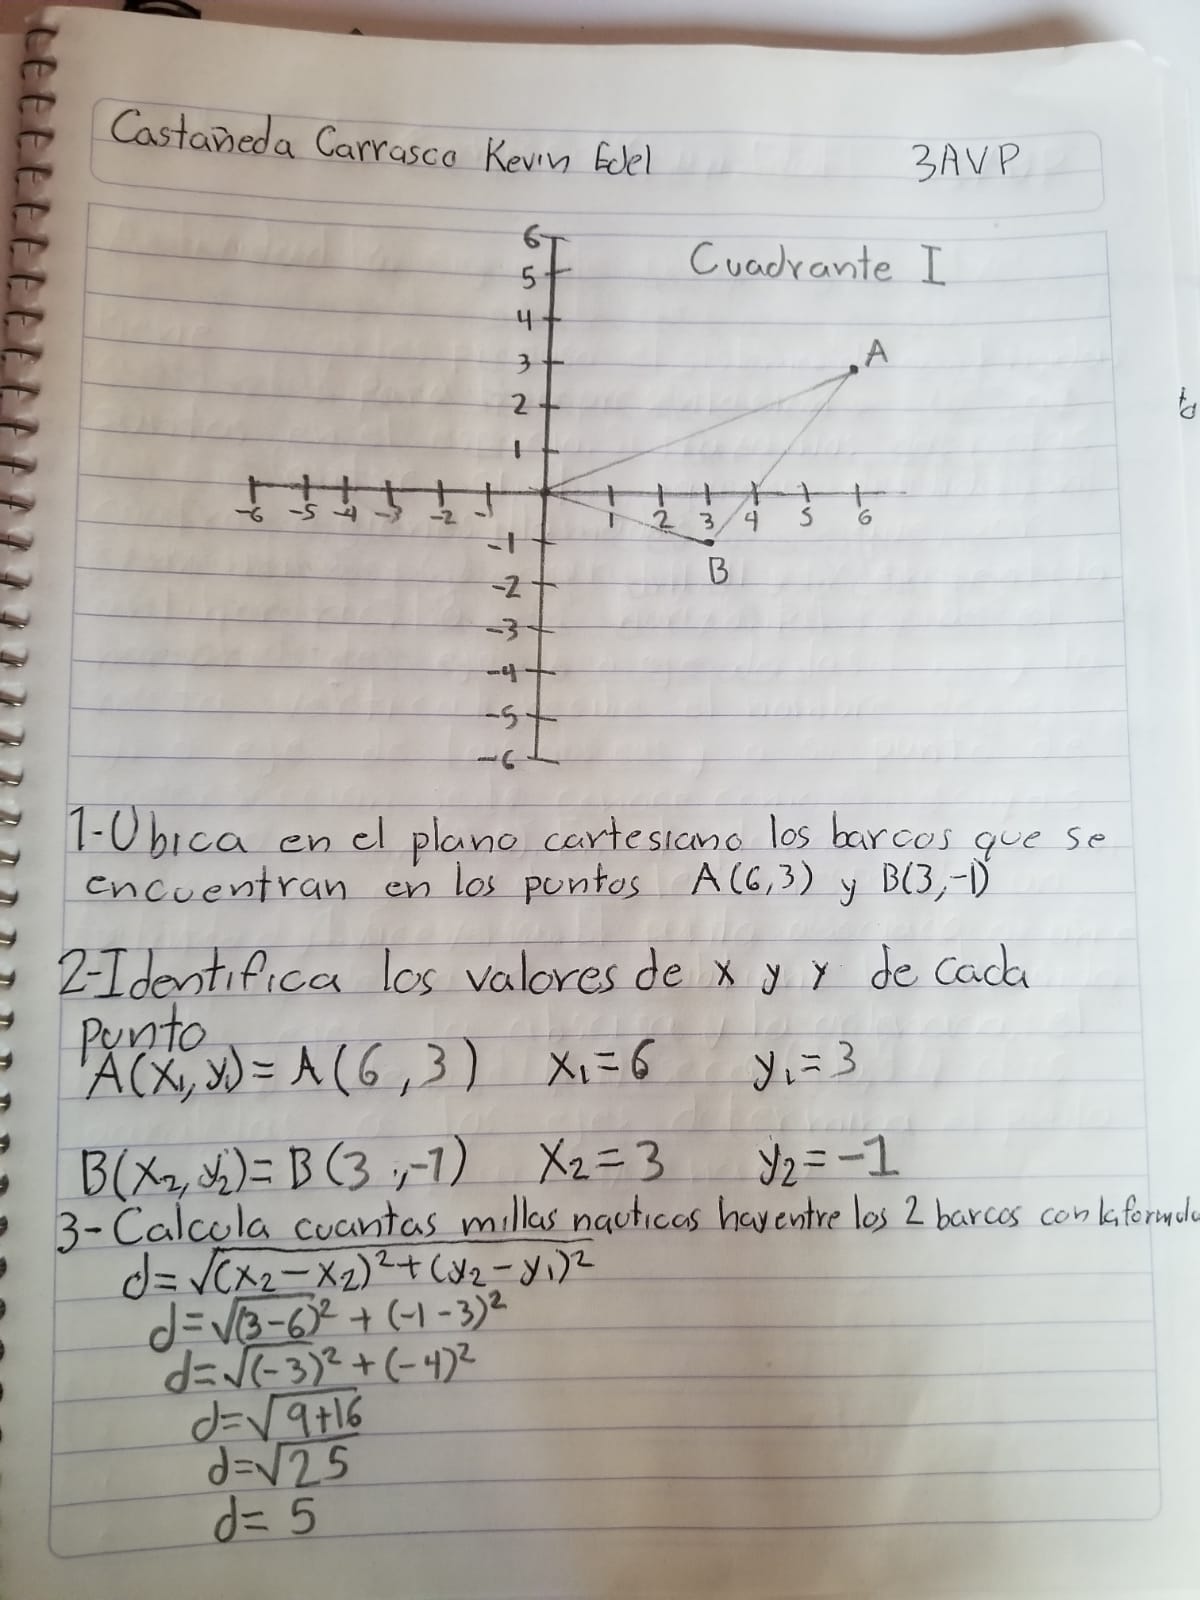 Castañeda Carrasco Kevin Edel 3AVP
Cuadrante I
6
5
4
3
2
1
A
-6 -5 -4 -3 -2 -1 1 2 3 4 5 6
-1
B
-2
-3
-4
-5
-6
1-Ubica en el plano cartesiano los barcos que se
encuentran en los puntos A(6,3) y B(3,-1)
2-Identifica los valores de x y y de cada
punto
A(x₁, y₁)= A(6,3) x₁=6 y₁=3
B(x₂, y₂)= B(3,-1) x₂=3 y₂=-1
3-Calcula cuantas millas nauticas hay entre los 2 barcos con la formula
d=√(x₂-x₂)²+(y₂-y₁)²
d=√(3-6)²+(-1-3)²
d=√(-3)²+(-4)²
d=√9+16
d=√25
d= 5